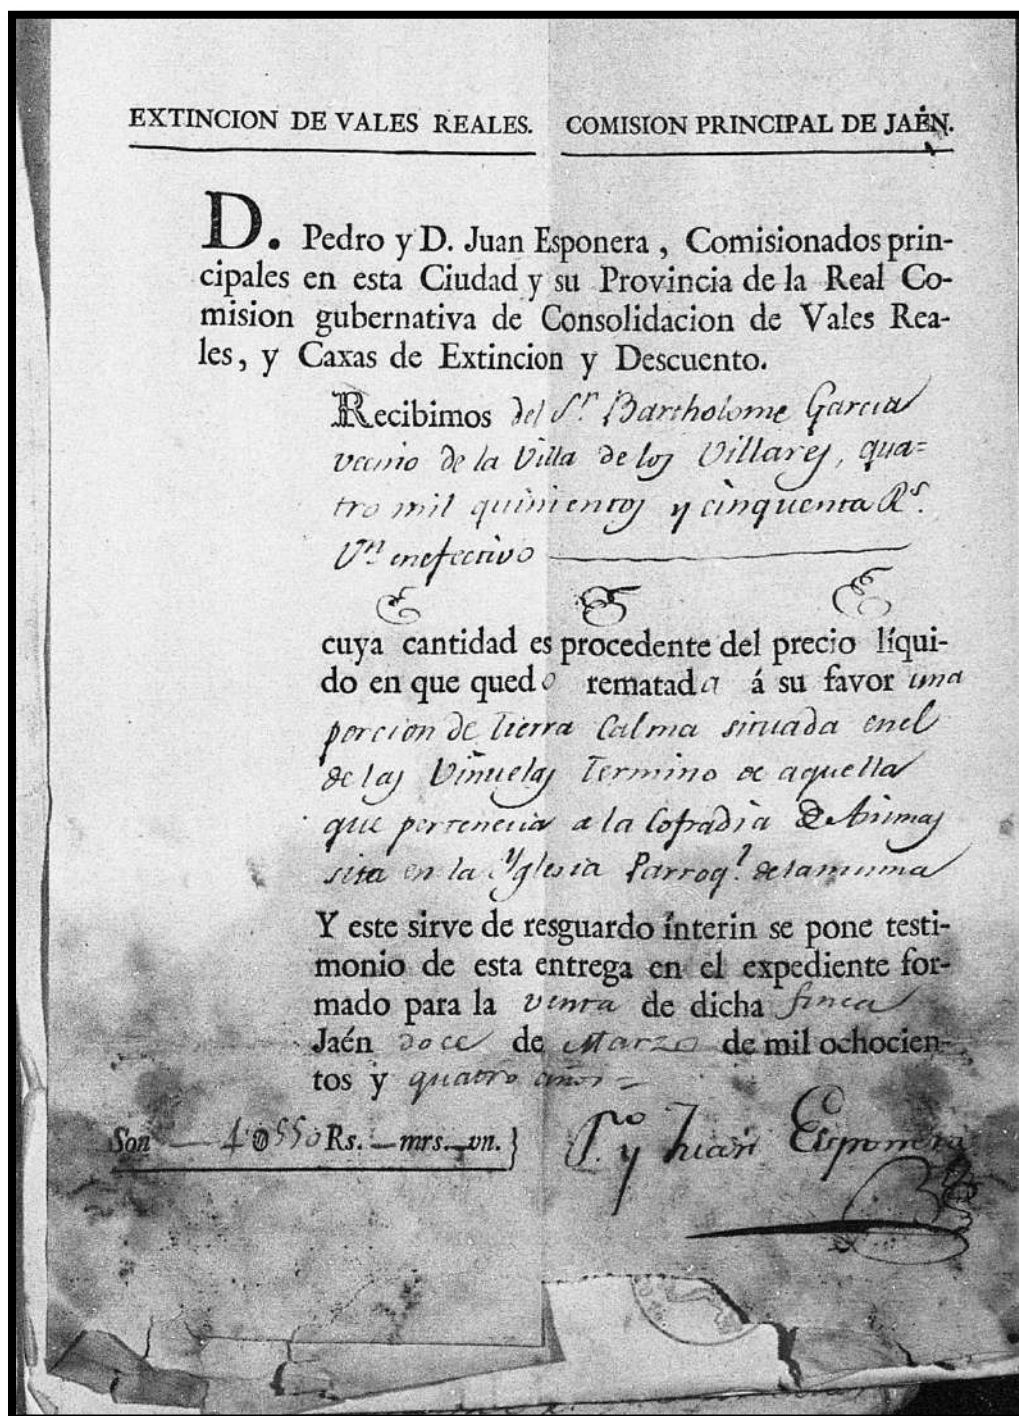 EXTINCION DE VALES REALES. COMISION PRINCIPAL DE JAÉN.
D. Pedro y D. Juan Esponera, Comisionados prin-
cipales en esta Ciudad y su Provincia de la Real Co-
mision gubernativa de Consolidacion de Vales Rea-
les, y Caxas de Extincion y Descuento.
Recibimos del Sr. Bartholome Garcia
vecino de la Villa de los Villares, qua=
tro mil quinientos y cinquenta Rs.
Vn enefectivo
cuya cantidad es procedente del precio líqui-
do en que quedo rematada á su favor una
porcion de tierra Calma situada enel
de las Viñuelas Termino de aquella
que pertenecia a la Cofradia de Animas
sita en la Yglesia Parroql. delamisma
Y este sirve de resguardo ínterin se pone testi-
monio de esta entrega en el expediente for-
mado para la venta de dicha finca
Jaén doce de Marzo de mil ochocien-
tos y quatro años=
Son 4@550 Rs. mrs. vn. } Po. y Juan Esponera